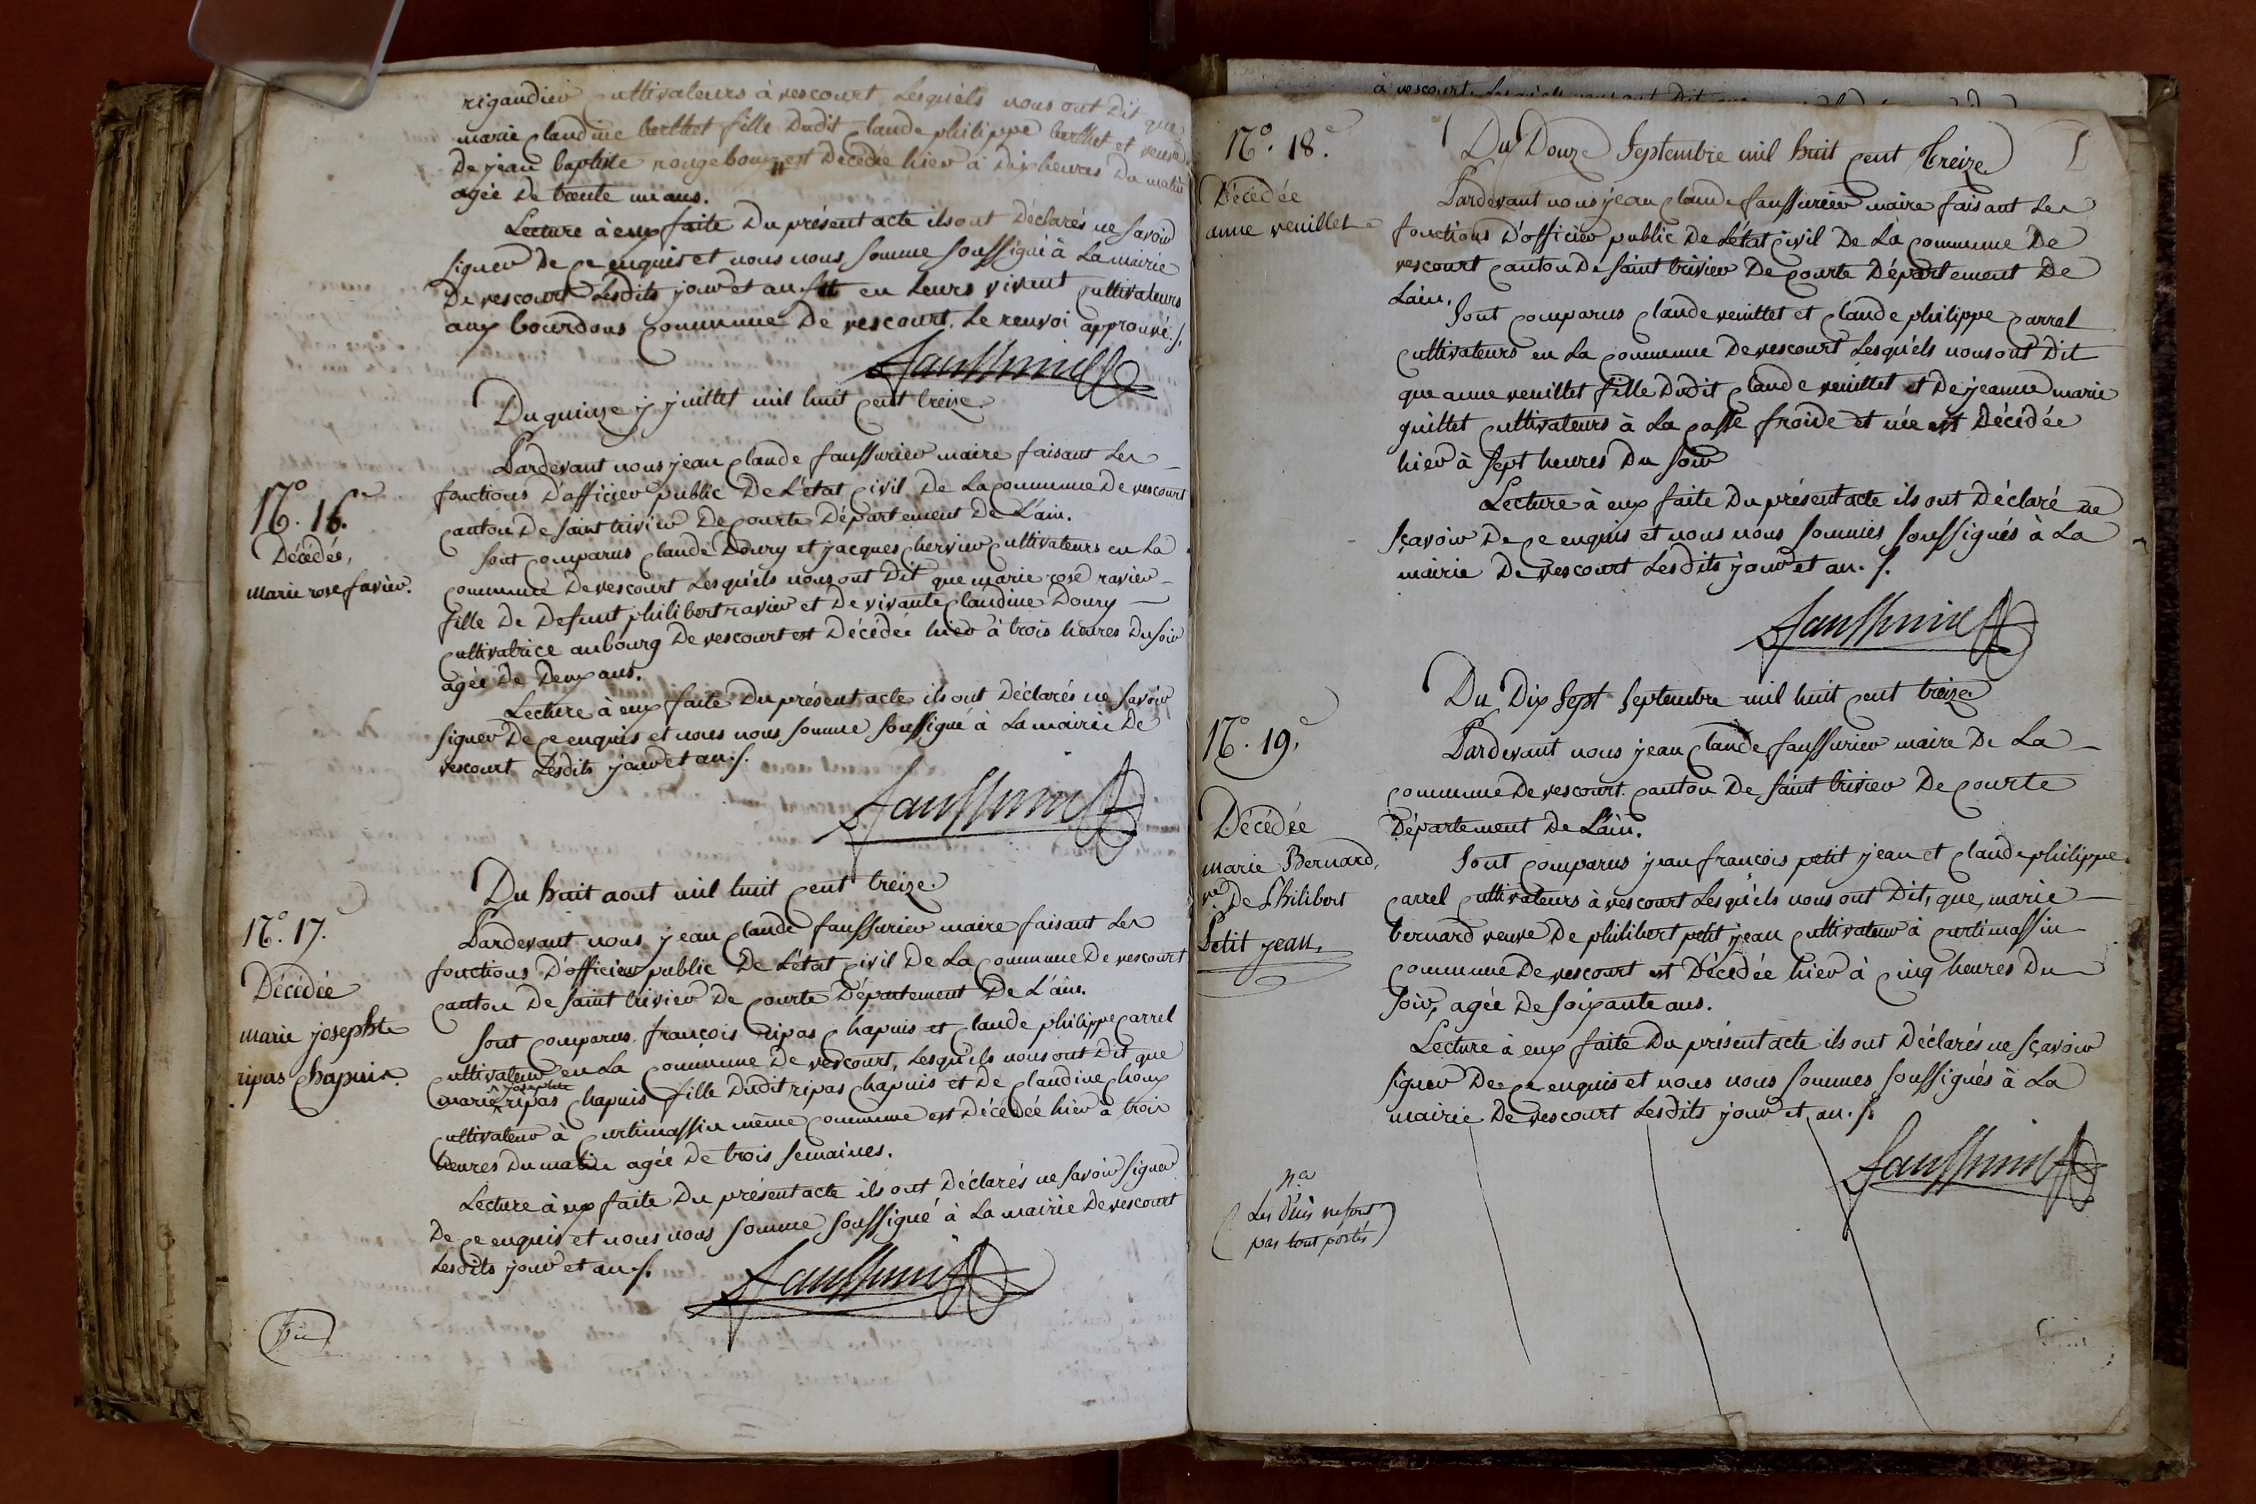 rigaudier cultivateurs à vescourt Lesquels nous ont Dit que
marie claudine berthet fille Dudit claude philippe berthet et veuve
De jean baptiste rongebourg est Decedée hier à Dix heures Du matin
agée De trente un ans.
Lecture à eux faite Du présent acte ils ont Déclarés ne savoir
signer De ce enquis et nous nous somme soussigné à La mairie
De vescourt Lesdits jour et an en Leurs vivent cultivateurs
aux bourdons commune De vescourt. Le renvoi approuvé./.
Du quinze juillet mil huit cent treize.
N.o 16.e
Décédés,
marie rose favier.
Pardevant nous jean claude faussurier maire faisant Les
fonctions D'officier public De L'état civil De La commune De vescourt
canton De saint trivier De courte Département De L'ain.
sont comparus claude Doury et jacques chervier cultivateurs en La
commune De vescourt Lesquels nous ont Dit que marie rose ravier
fille De Defunt philibert ravier et De vivante claudine Doury
cultivatrice au bourg De vescourt est Décédée hier à trois heures Du soir
agée De Deux ans.
Lecture à eux faite Du présent acte ils ont Déclarés ne savoir
signer De ce enquis et nous nous somme soussigné à La mairie De
vescourt Lesdits jour et an./.
Du huit aout mil huit cent treize.
N.o 17.e
Décédée
marie josephte
ripas chapuis.
Pardevant nous jean claude faussurier maire faisant Les
fonctions D'officier public De L'état civil De La commune De vescourt
canton De saint trivier De courte Département De L'ain.
sont comparus françois ripas chapuis et claude philippe carrel
cultivateur en La commune De vescourt, Lesquels nous ont Dit que
josephte
marie ripas chapuis fille Dudit ripas chapuis et De claudine choux
cultivateur à curtimassin même commune est Décédée hier à trois
heures Du matin agée De trois semaines.
Lecture à eux faite Du présent acte ils ont Déclarés ne savoir signer
De ce enquis et nous nous somme soussigné à La mairie De vescourt
Lesdits jour et an./.
N.o 18.e
Décédée
anne veuillet
Du Douze Septembre mil huit cent treize
Pardevant nous jean claude faussurier maire faisant Les
fonctions D'officier public De L'état civil De La commune De
vescourt canton De saint trivier De courte Département De
L'ain.
Sont comparus claude veuillet et claude philippe carrel
cultivateurs en La commune De vescourt Lesquels nous ont Dit
que anne veuillet fille Dudit claude veuillet et De jeanne marie
guillet cultivateurs à La casse froide et née est Décédée
hier à sept heures Du soir
Lecture à eux faite Du présent acte ils ont Déclaré ne
sçavoir De ce enquis et nous nous sommes soussignés à La
mairie De vescourt Lesdits jour et an./.
N.o 19.e
Décédée
marie Bernard,
v.e De Philibert
Petit jean.
Du Dix sept septembre mil huit cent treize
Pardevant nous jean claude faussurier maire De La
commune De vescourt canton De saint trivier De courte
Département De L'ain.
Sont comparus jean françois petit jean et claude philippe
carrel cultivateurs à vescourt Lesquels nous ont Dit, que, marie
bernard veuve De philibert petit jean cultivateur à curtimassin
commune De vescourt est Décédée hier à cinq heures Du
soir, agée De soixante ans.
Lecture à eux faite Du présent acte ils ont Déclarés ne sçavoir
signer De ce enquis et nous nous sommes soussignés à La
mairie De vescourt Lesdits jour et an./.
pas tout portés